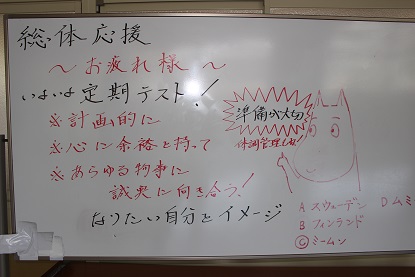 総体応援
～お疲れ様～
いよいよ定期テスト!
※計画的に
※心に余裕を持って
※あらゆる物事に
誠実に向き合う!
なりたい自分をイメージ
準備が大切
体調管理もね!
A スウェーデン
B フィンランド
Ⓒ ミームン
D ムミ